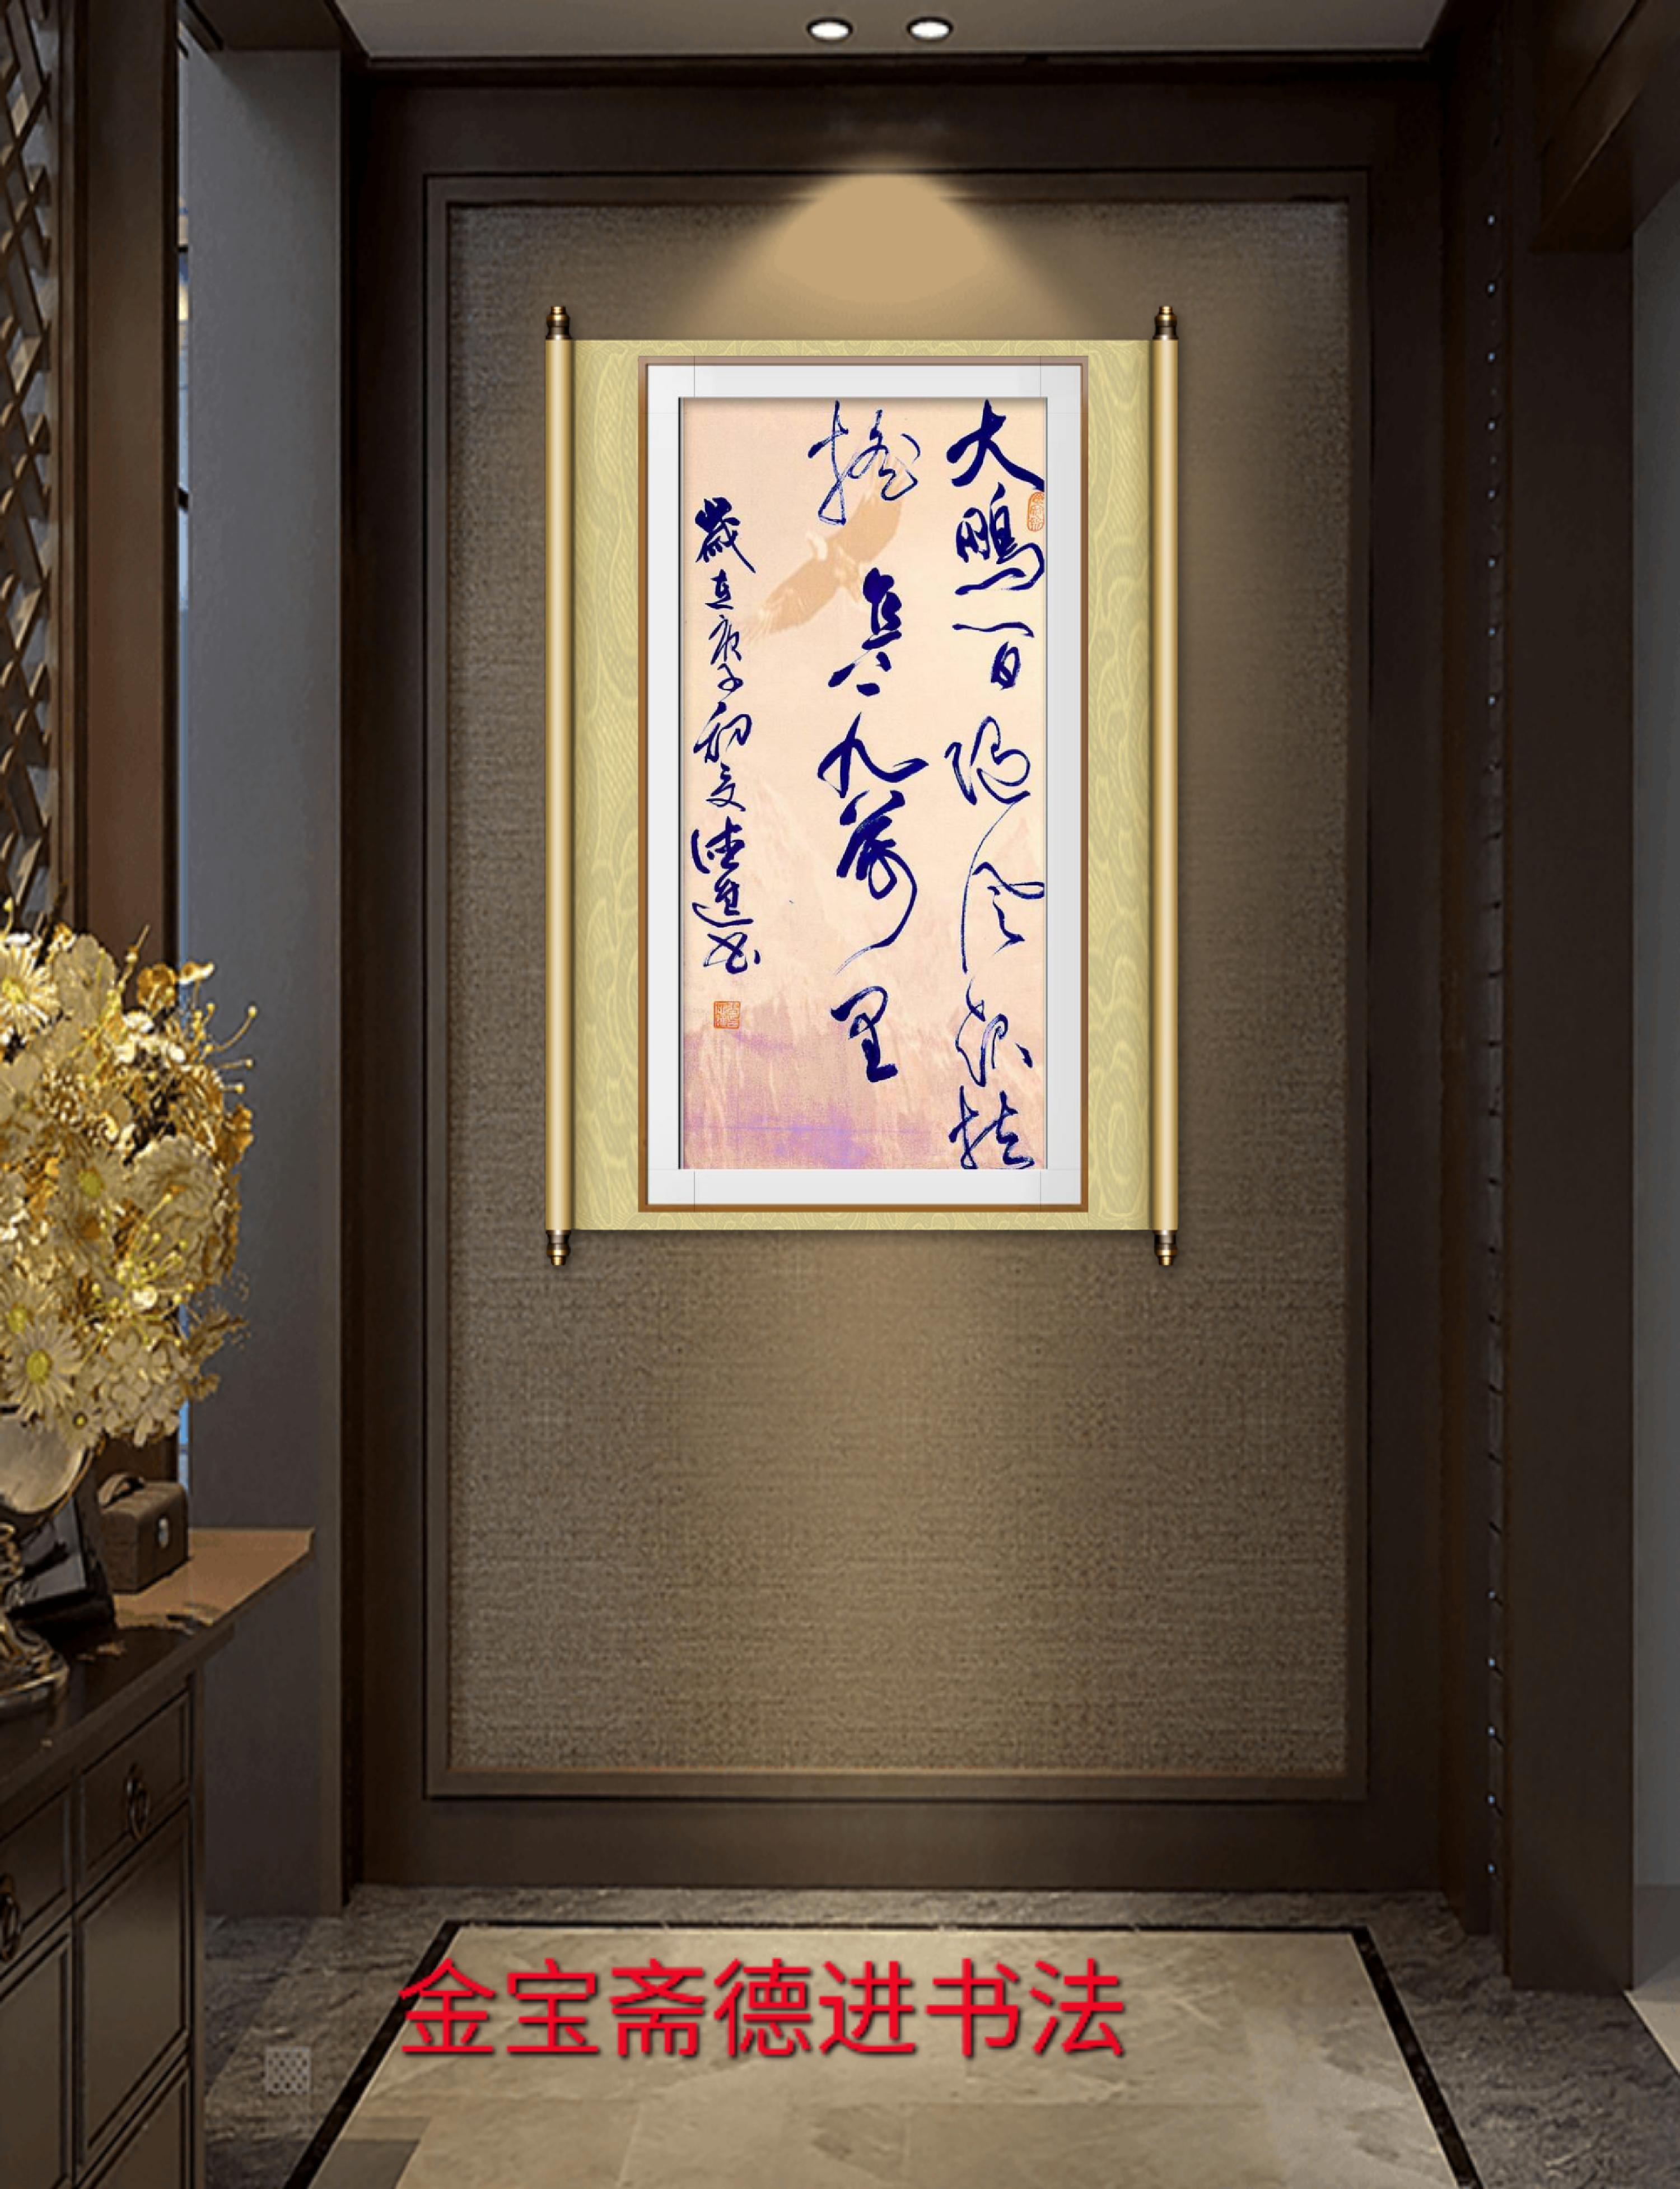 大鵬一日随风起扶
摇直上九萬里
歲在庚子初夏德進书
金宝斋德进书法